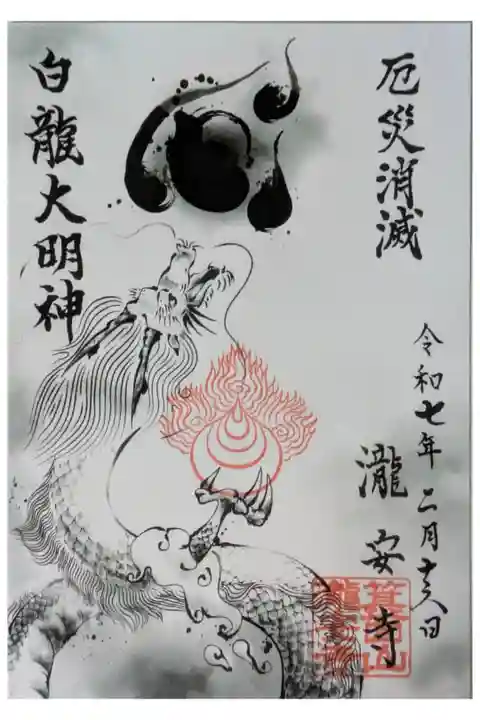 厄災消滅
令和七年 二月十八日
瀧安寺
箕面山
瀧安寺
白龍大明神